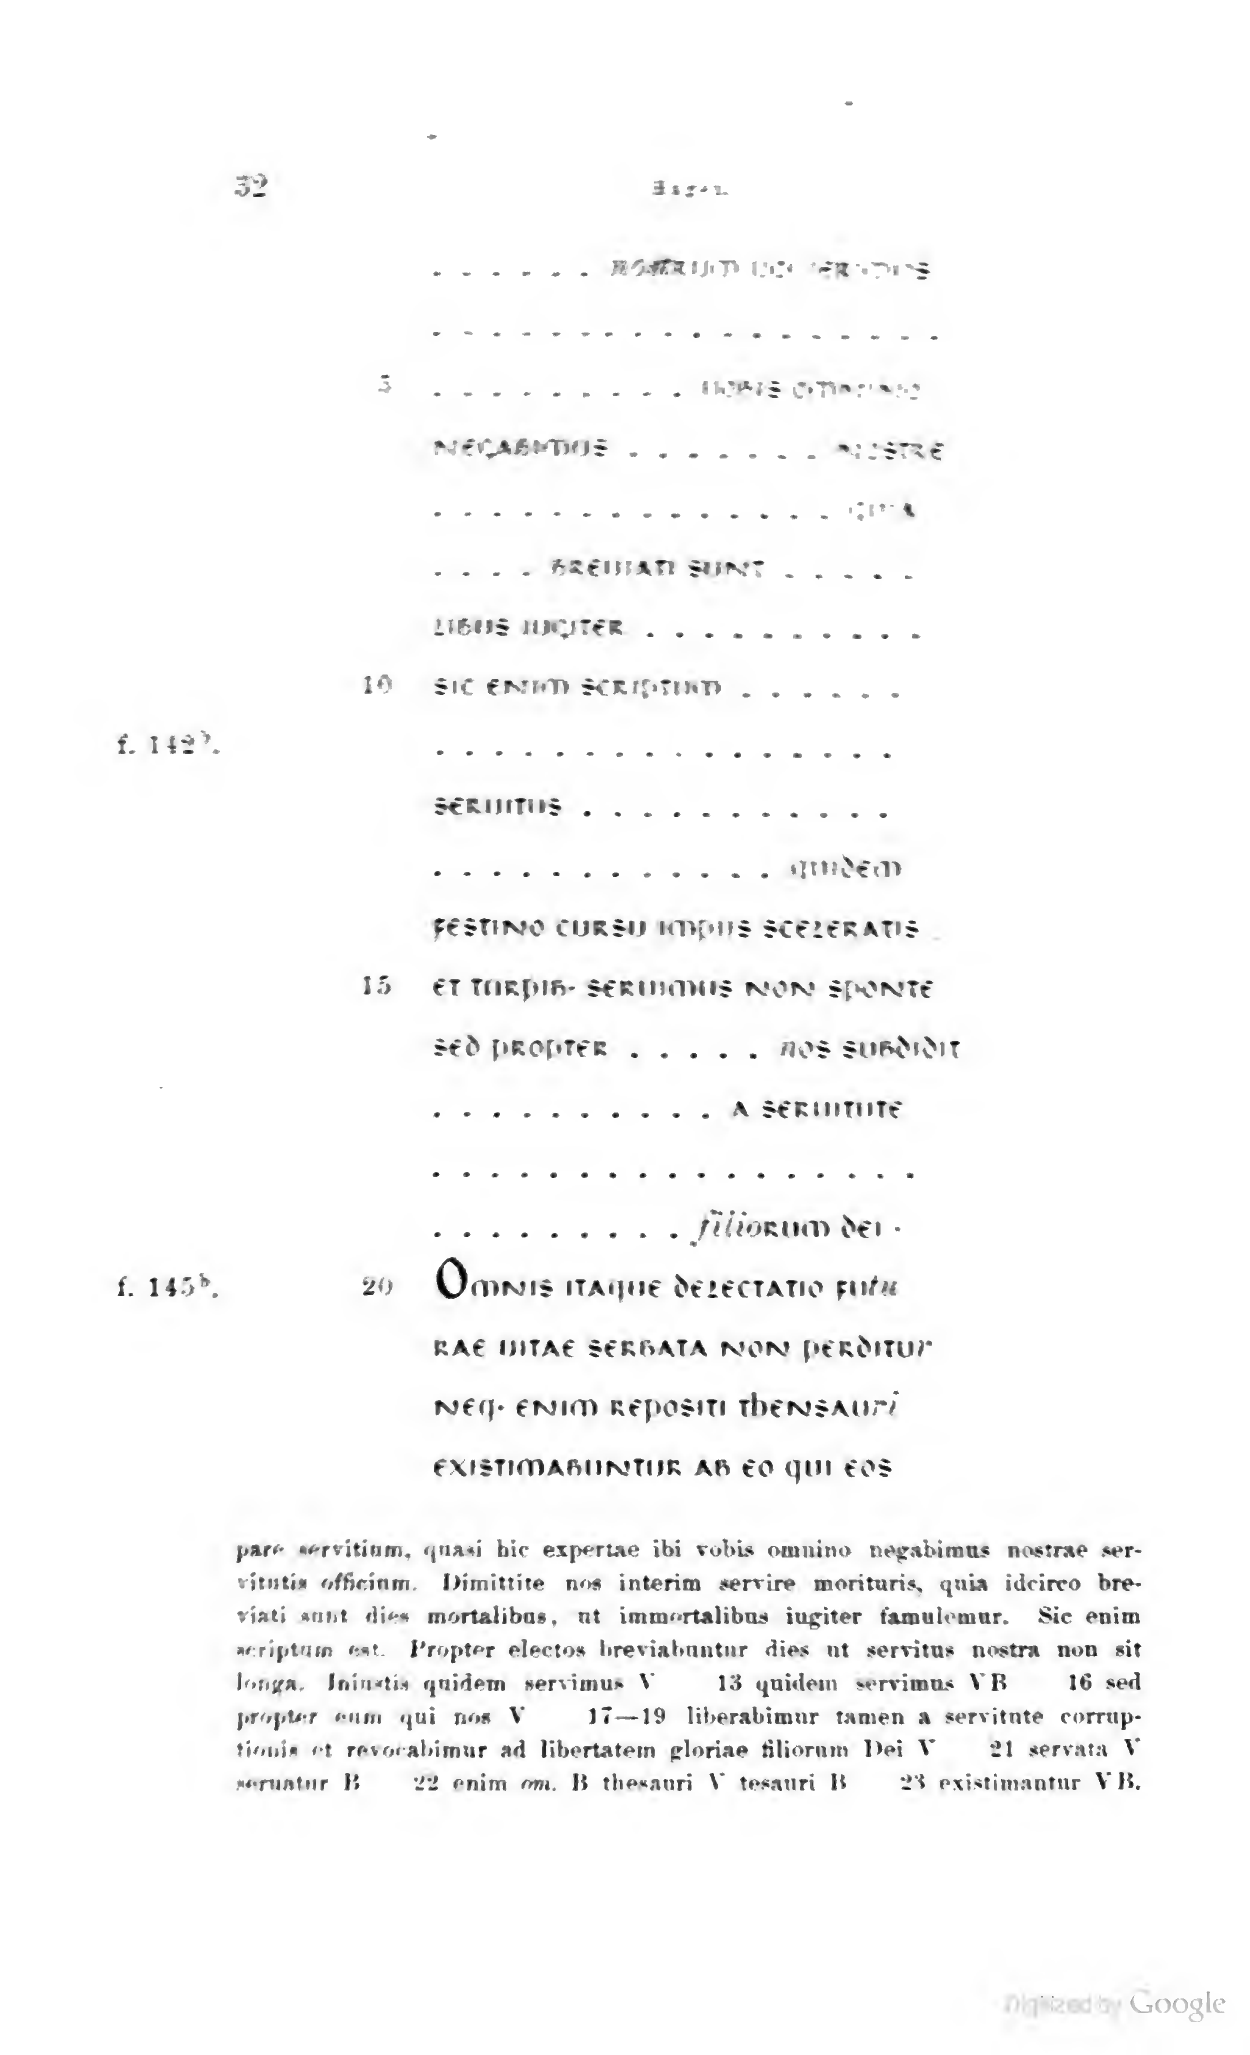 32 Hagen
. . . . . . NOSTRUM
. . . . . . . . . . . . . . . . . .
5 . . . . . . . . . UOBIS OMNINO
NEGABIMUS . . . . . . . NOSTRE
. . . . . . . . . . . . . . QUIA
. . . . BREUIATI SUNT . . . . .
LIBUS IUGITER . . . . . . . . . .
10 SIC ENIM SCRIPTUM . . . . . .
f. 142b. . . . . . . . . . . . . . . . .
SERUITUS . . . . . . . . . . .
. . . . . . . . . . . . quidEM
FESTINO CURSU IMPIIS SCELERATIS
15 ET TURPIB· SERUIMUS NON SPONTE
SED PROPTER . . . . . nOS SUBDIDIT
. . . . . . . . . . A SERUITUTE
. . . . . . . . . . . . . . . . .
. . . . . . . . . filioRUM DEI ·
f. 145b. 20 OMNIS ITAQUE DELECTATIO FUtu
RAE UITAE SERBATA NON PERDITUr
NEQ· ENIM REPOSITI THENSAUri
EXISTIMABUNTUR AB EO QUI EOS
pare servitium, quasi hic expertae ibi vobis omnino negabimus nostrae ser-
vitutis officium. Dimittite nos interim servire morituris, quia idcirco bre-
viati sunt dies mortalibus, ut immortalibus iugiter famulemur. Sic enim
scriptum est. Propter electos breviabuntur dies ut servitus nostra non sit
longa. Iniustis quidem servimus V 13 quidem servimus VB 16 sed
propter eum qui nos V 17—19 liberabimur tamen a servitute corrup-
tionis et revocabimur ad libertatem gloriae filiorum Dei V 21 servata V
seruatur B 22 enim om. B thesauri V tesauri B 23 existimantur VB.
Digitized by Google